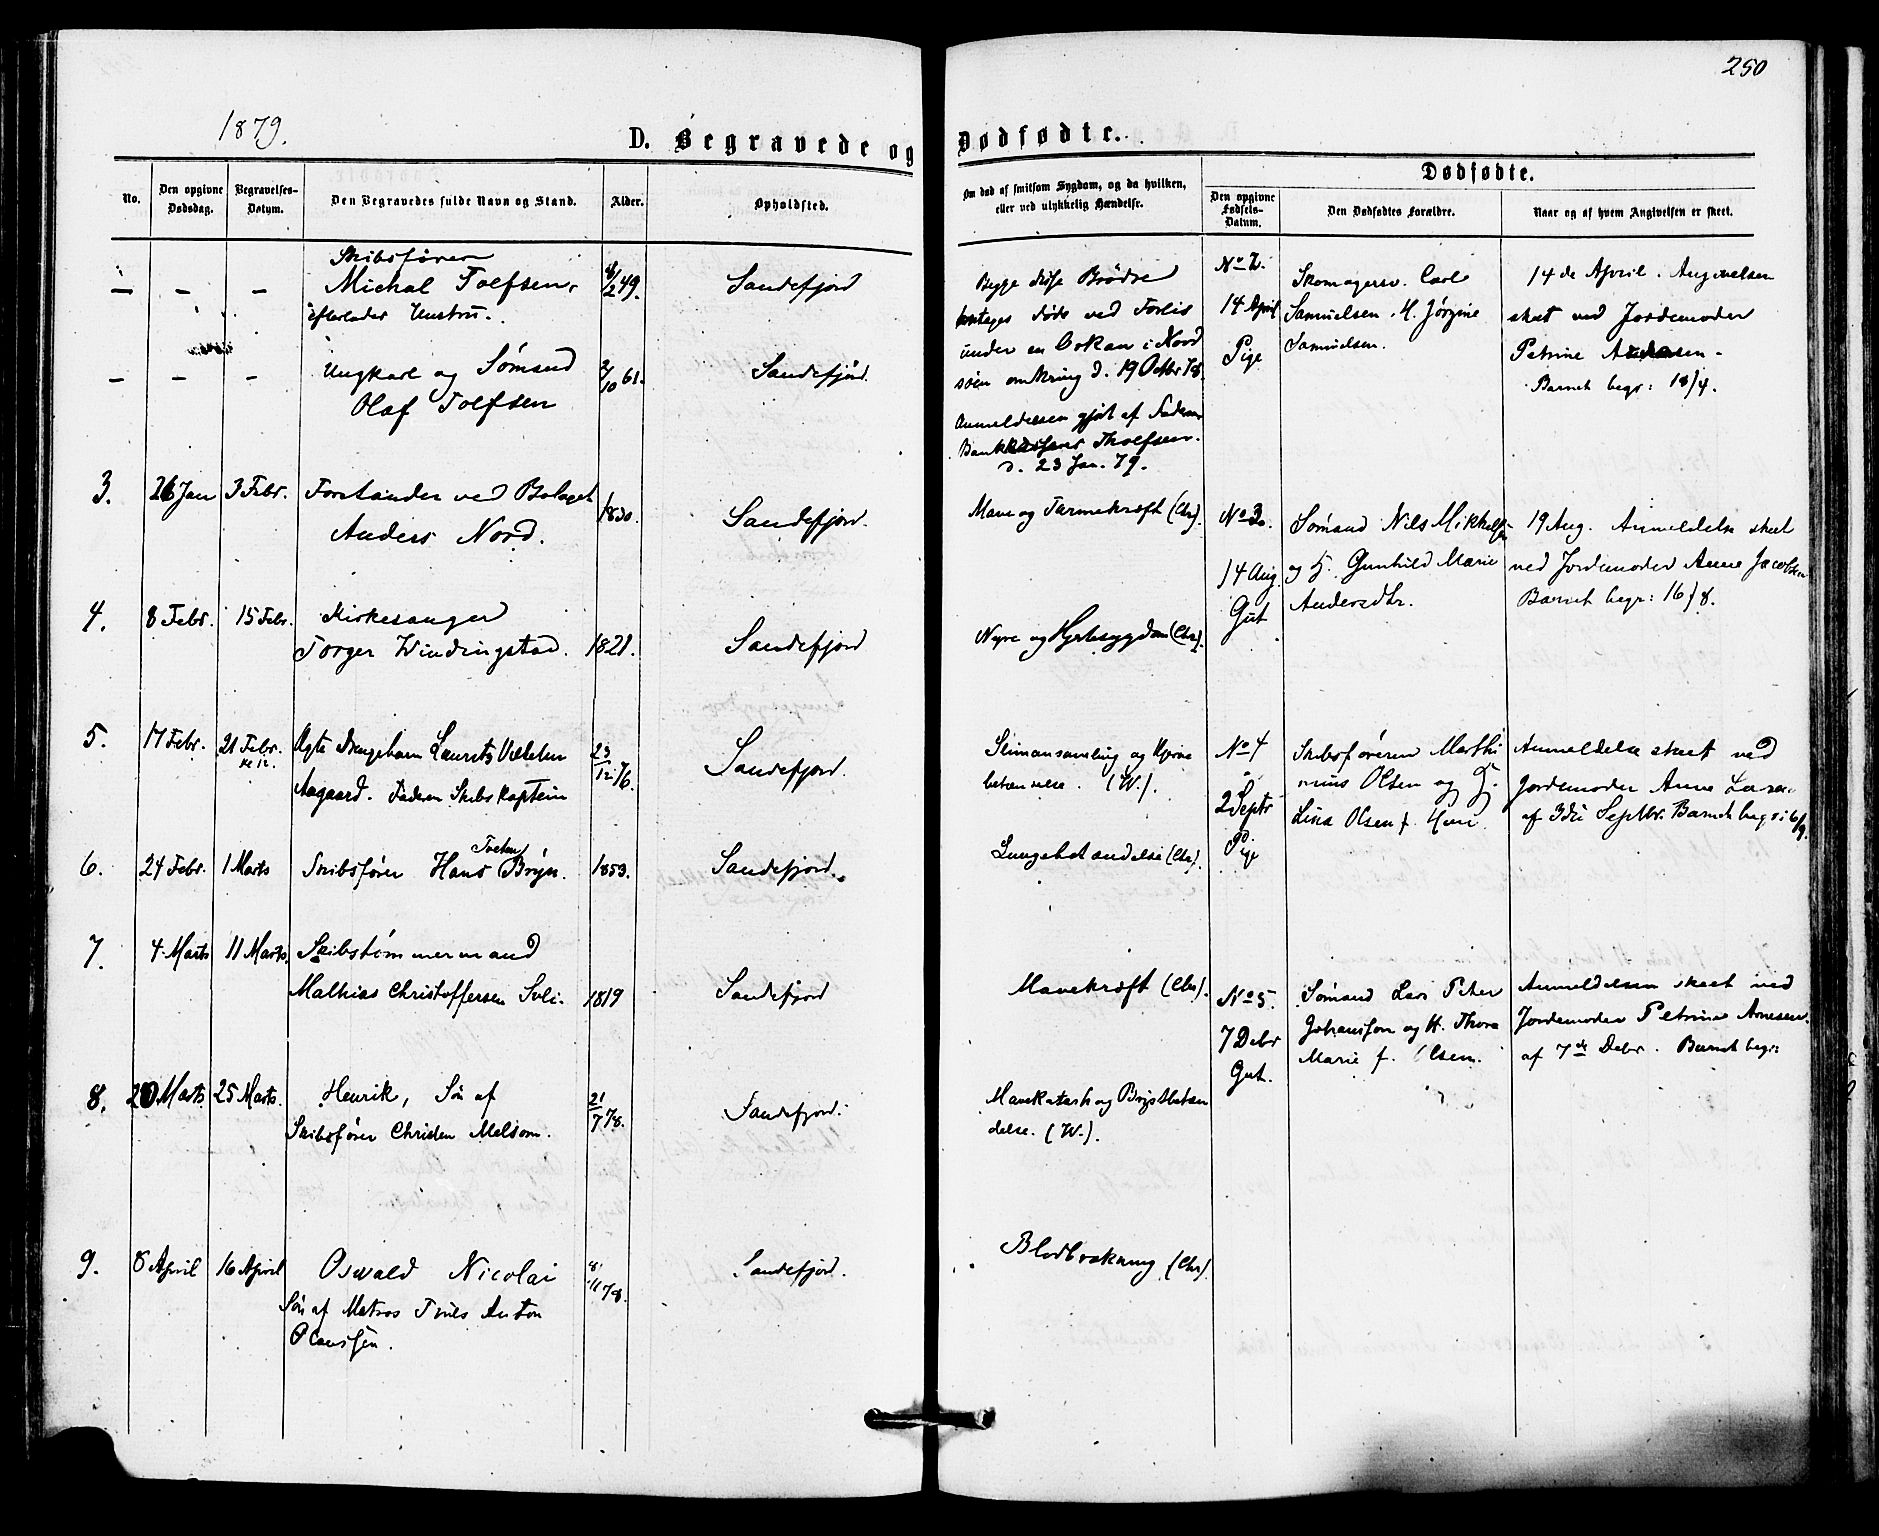 250
1879.
D. Begravede og Dødfødte.
No.
Den opgivne Dødsdag.
Begravelses-Datum.
Den Begravedes fulde Navn og Stand.
Alder.
Opholdsted.
Om død af smitsom Sygdom, og da hvilken,
eller ved ulykkelig Hændelse.
Dødfødte.
Den opgivne Fødsels-Datum.
Den Dødfødtes Forældre.
Naar og af hvem Angivelsen er skeet.
— — —
Skibsfører
Michal Tolfsen,
efterlader Hustru.
8/2 49.
Sandefjord
Begge disse Brødre
antages døde ved Forlis
under en Orkan i Nord
søen omkring d. 19 Octbr 78.
— — —
Ungkarl og Sømand
Olaf Tolfsen
2/10 61.
Sandefjord.
Anmeldelsen gjort af Faderen
Tholfsen.
d. 23 Jan. 79.
3.
26 Jan
3 Febr.
Forstander ved Bolaget
Anders Nord.
1830.
Sandefjord.
Mave og Tarmekræft (Chr).
4.
8 Febr.
15 Febr.
Kirkesanger
Torger Windingstad.
1821.
Sandefjord
Nyre og Hjertesygdom (Chr).
5.
17 Febr.
21 Febr.
kl 12.
Ægte Drengebarn Laurits
Aagaard. Faderen Skibskaptein
23/12 76.
Sandefjord.
Slimansamling og Hjerne
betændelse. (W.).
6.
24 Febr.
1 Marts
Skibsfører Hans Bryn.
1853.
Sandefjord.
Lungebetændelse (Chr).
7.
4 Marts
11 Marts.
Skibstømmermand
Mathias Christoffersen
1819
Sandefjord
Mavekræft (Chr).
8.
20 Marts
25 Marts.
Henrik, Søn af
Skibsfører Christen Melsom.
21/7 78.
Sandefjord.
Mavekatarh og Brystbetæn
delse. (W.).
9.
8 April
16 April
Oswald Nicolai
Søn af Matros Anton
8/11 78.
Sandefjord.
Blodbrækning (Chr).
No 2.
14 April
Pige
Skomagersv. Carl
Samuelsen. H. Jørgine
Samuelsen.
14de April. Angivelsen
skeet ved Jordemoder
Petrine
Barnet begr: 18/4.
No 3.
14 Aug.
Gut
Sømand Nils Mikkelsen
og H. Gunhild Marie
Andersdtr.
19 Aug. Anmeldelse skeet
ved Jordemoder Anne Jacobsen
Barnet begr: 16/8.
No 4
2 Septr
Pige
Skibsføreren Marthi
nius Olsen og H.
Lina Olsen f.
Anmeldelse skeet ved
Jordemoder Anne Larsen
af 3die Septbr. Barnet begr: 6/9.
No 5.
7 Debr
Gut.
Sømand Lars Peter
Johansson og H. Thora
Marie f. Olsen.
Anmeldelsen skeet ved
Jordemoder Petrine Arnesen.
af 7de Debr. Barnet begr: